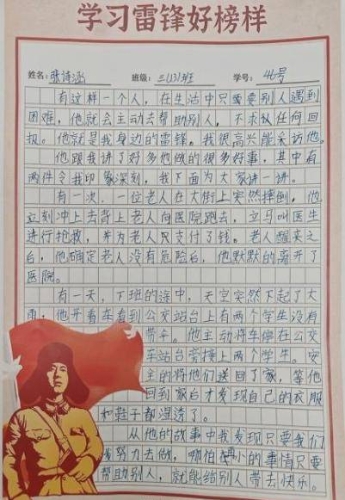 学习雷锋好榜样
姓名: 张诗涵 班级: 三(13)班 学号: 46号
有这样一个人，在生活中只要别人遇到
困难，他就会主动去帮助别人，不求任何回
报。他就是我身边的雷锋。我很高兴能采访他。
他跟我讲了好多他做的很多好事，其中有
两件令我印象深刻，我下面为大家讲一讲。
有一次，一位老人在大街上突然摔倒，他
立刻冲上去背上老人向医院跑去，立马叫医生
进行抢救，并为老人只支付了钱。老人醒来之
后，他确定老人没有危险后，他默默的离开了
医院。
有一天，下班的途中，天空突然下起了大
雨，他开着车看到公交站台上有两个学生没有
带伞。他主动将车停在公交
车站台旁接上两个学生。安
全的将他们送回了家，等他
回到家后才发现自己的衣服
和鞋子都湿透了。
从他的故事中我发现只要我们
努力去做，哪怕小的事情只要
帮助别人，就能给别人带去快乐。